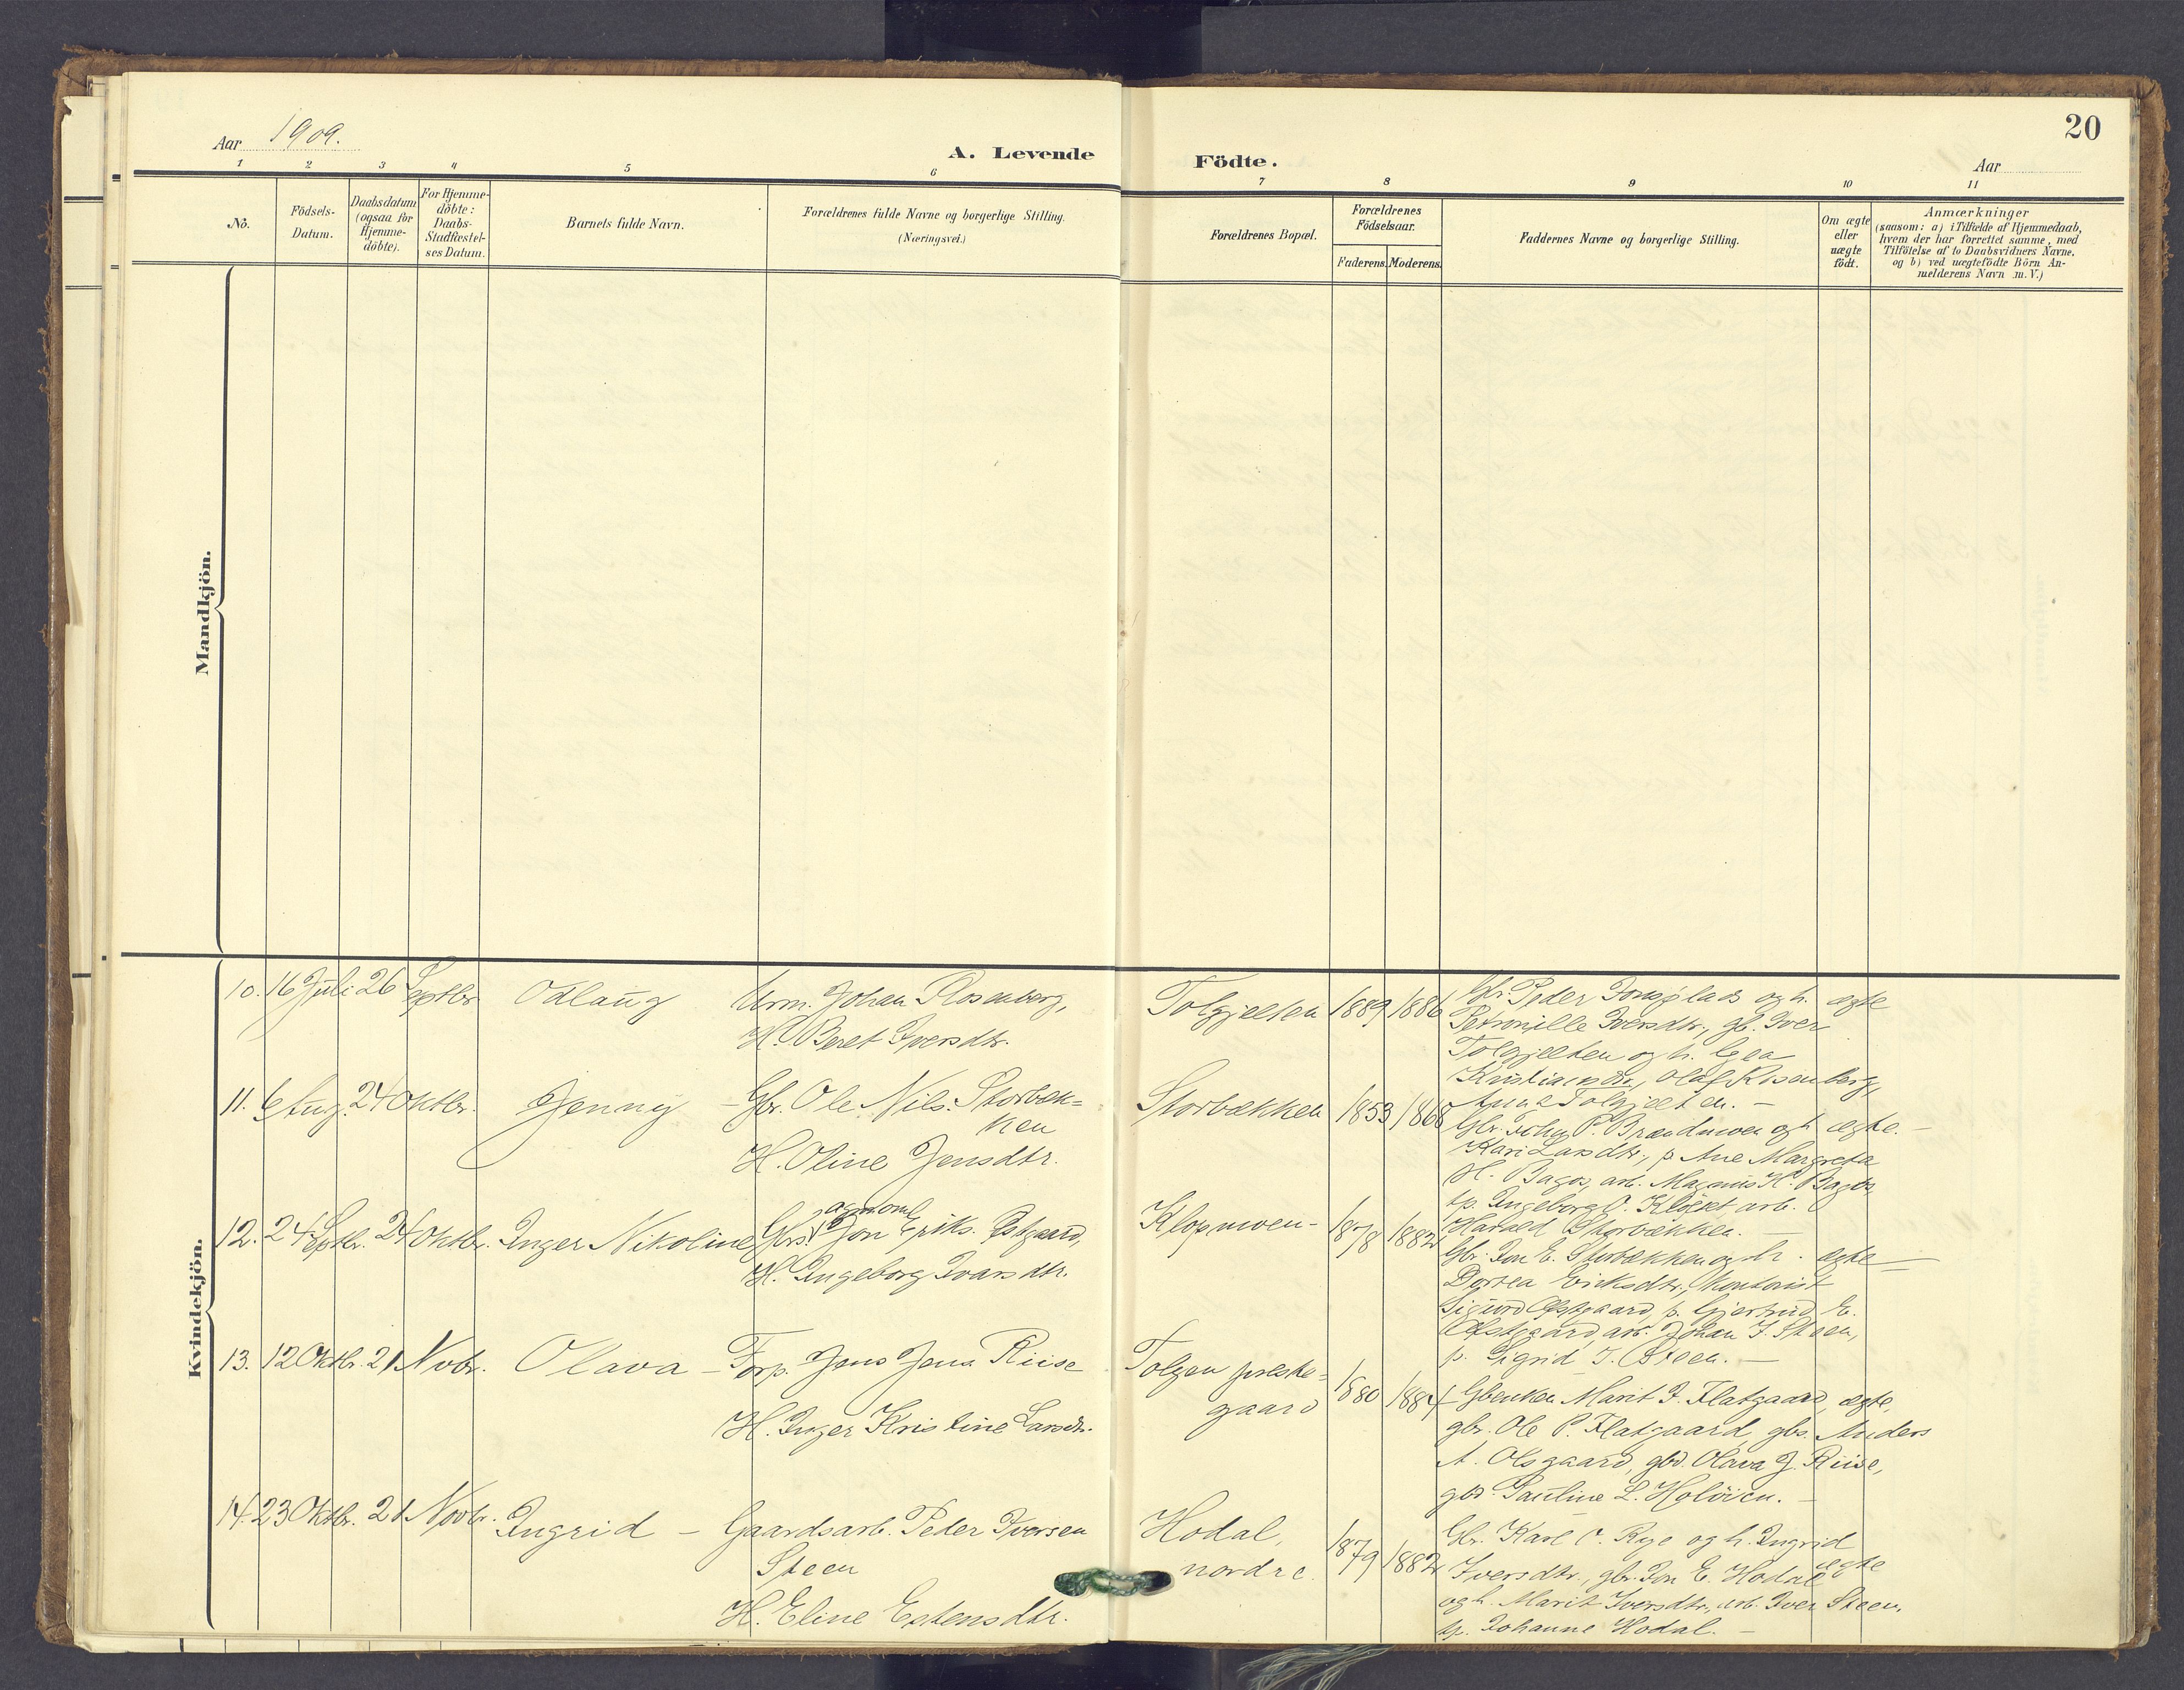 20
Aar 1909.
A. Levende Födte.
Aar
1 2 3 4 5 6 7 8 9 10 11
No.
Födsels-Datum.
Daabsdatum (ogsaa for Hjemme-döbte).
For Hjemme-döbte: Daabs-Stadfæstel-ses Datum.
Barnets fulde Navn.
Forældrenes fulde Navne og borgerlige Stilling.
(Næringsvei.)
Forældrenes Bopæl.
Forældrenes Födselsaar.
Faderens. Moderens.
Faddernes Navne og borgerlige Stilling.
Om ægte eller uægte födt.
Anmærkninger
(saasom: a) i Tilfælde af Hjemmedaab,
hvem der har forrettet samme, med
Tilföielse af to Daabsvidners Navne,
og b) ved uægtefödte Börn An-
melderens Navn m. V.)
Mandkjön.
Kvindekjön.
10. 16 Juli 26 Septbr. Odlaug
Urm. Johan Rosenberg,
H. Beret Iversdtr.
Tolgjelten 1889 1886
Gbr. Peder Jonsplads og h. ægte
Petronille Iversdtr., gb. Iver
Tolgjelten og h. Gea
Kristiansdtr., Olaf Rosenberg,
Anna Tolgjelten. -
11. 6 Aug. 24 Oktbr. Jenny
- Gbr. Ole Nils. Storbæk=
ken
H. Oline Jensdtr.
Storbækken 1853 1868
Gbr. John P. Brændmoen og h. ægte. -
Kari Larsdtr., p. Ane Margreta
H. Bagås, arb. Magnus H. Bagås,
tp. Ingeborg O. Klöket, arb.
Harald Storbækken. -
12. 24 Septbr. 24 Oktbr. Inger Nikoline
agronom
Gbrs. Jon Eriks. Estgaard,
H. Ingeborg Ivarsdtr.
Klopmoen - 1878 1882
Gbr. Jon E. Storbækken og h. ægte
Dortea Eriksdtr., kontorist
Sigurd Estgaard, p. Gjertrud E.
Estgaard, arb. Johan I. Steen,
p. Sigrid I. Steen. -
13. 12 Oktbr. 21 Novbr. Olava -
Forp. Jens Jens. Riise
H. Inger Kristine Larsdtr.
Tolgen preste=
gaard 1880 1884
Gbenken Marit I. Flatgaard, ægte,
gbr. Ole P. Flatgaard, gbs. Anders
A. Olsgaard, gbd. Olava J. Riise,
gbd. Pauline L. Holöien. -
14. 23 Oktbr. 21 Novbr. Ingrid -
Gaardsarb. Peder Iversen
Steen
H. Eline Estensdtr.
Hodal,
nordre. 1879 1882
Gbr. Karl O. Rye og h. Ingrid
Iversdtr., gbr. Jon E. Hodal ægte
og h. Marit Iversdtr., arb. Iver Steen,
tp. Johanne Hodal. -